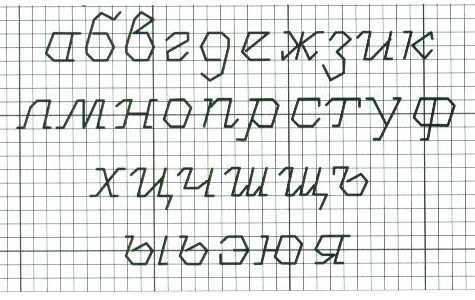 а б в г д е ж з и к
л м н о п р с т у ф
х ц ч ш щ ъ
ы ь э ю я